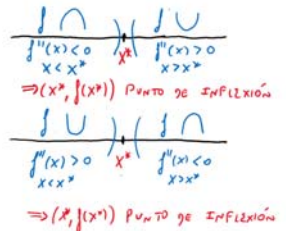 f ∩ ) ( f ∪
f''(x)<0 x* f''(x)>0
x<x* x>x*
⇒(x*, f(x*)) PUNTO DE INFLEXIÓN
f ∪ ) ( f ∩
f''(x)>0 x* f''(x)<0
x<x* x>x*
⇒(x*, f(x*)) PUNTO DE INFLEXIÓN